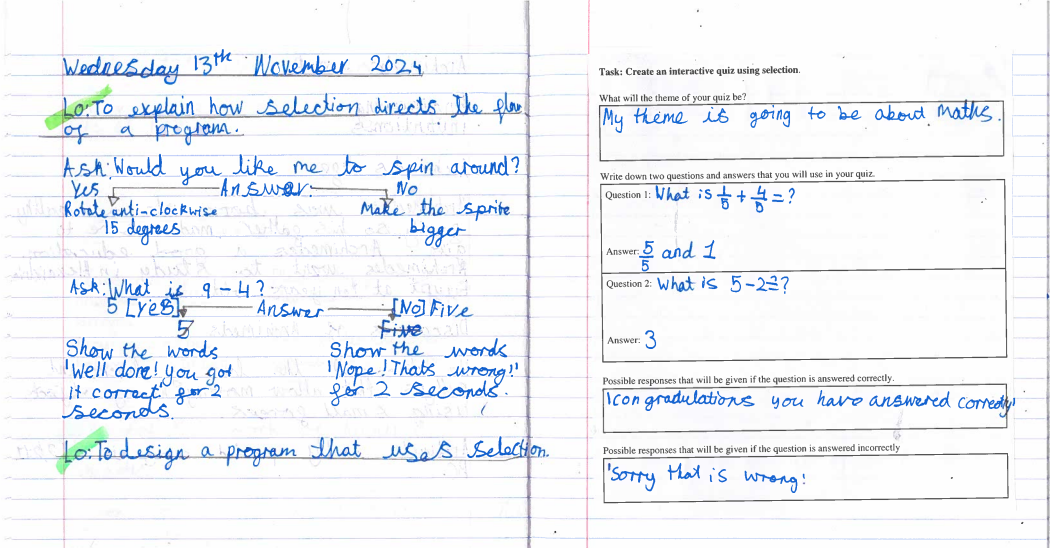 Wednesday 13th November 2024
Lo: To explain how selection directs the flow
of a program.
Ask: Would you like me to spin around?
Yes Answer: No
Rotate anti-clockwise Make the sprite
15 degrees bigger
Ask: What is 9 - 4?
5 [Yes] Answer [No] Five
5 Five
Show the words Show the words
'Well done! you got 'Nope! Thats wrong!'
it correct' for 2 for 2 seconds.
seconds.
Lo: To design a program that uses selection.
Task: Create an interactive quiz using selection.
What will the theme of your quiz be?
My theme is going to be about Maths.
Write down two questions and answers that you will use in your quiz.
Question 1: What is 1/5 + 4/5 = ?
Answer: 5/5 and 1
Question 2: What is 5-2=?
Answer: 3
Possible responses that will be given if the question is answered correctly.
'congradulations you have answered correctly'
Possible responses that will be given if the question is answered incorrectly
'Sorry that is wrong!